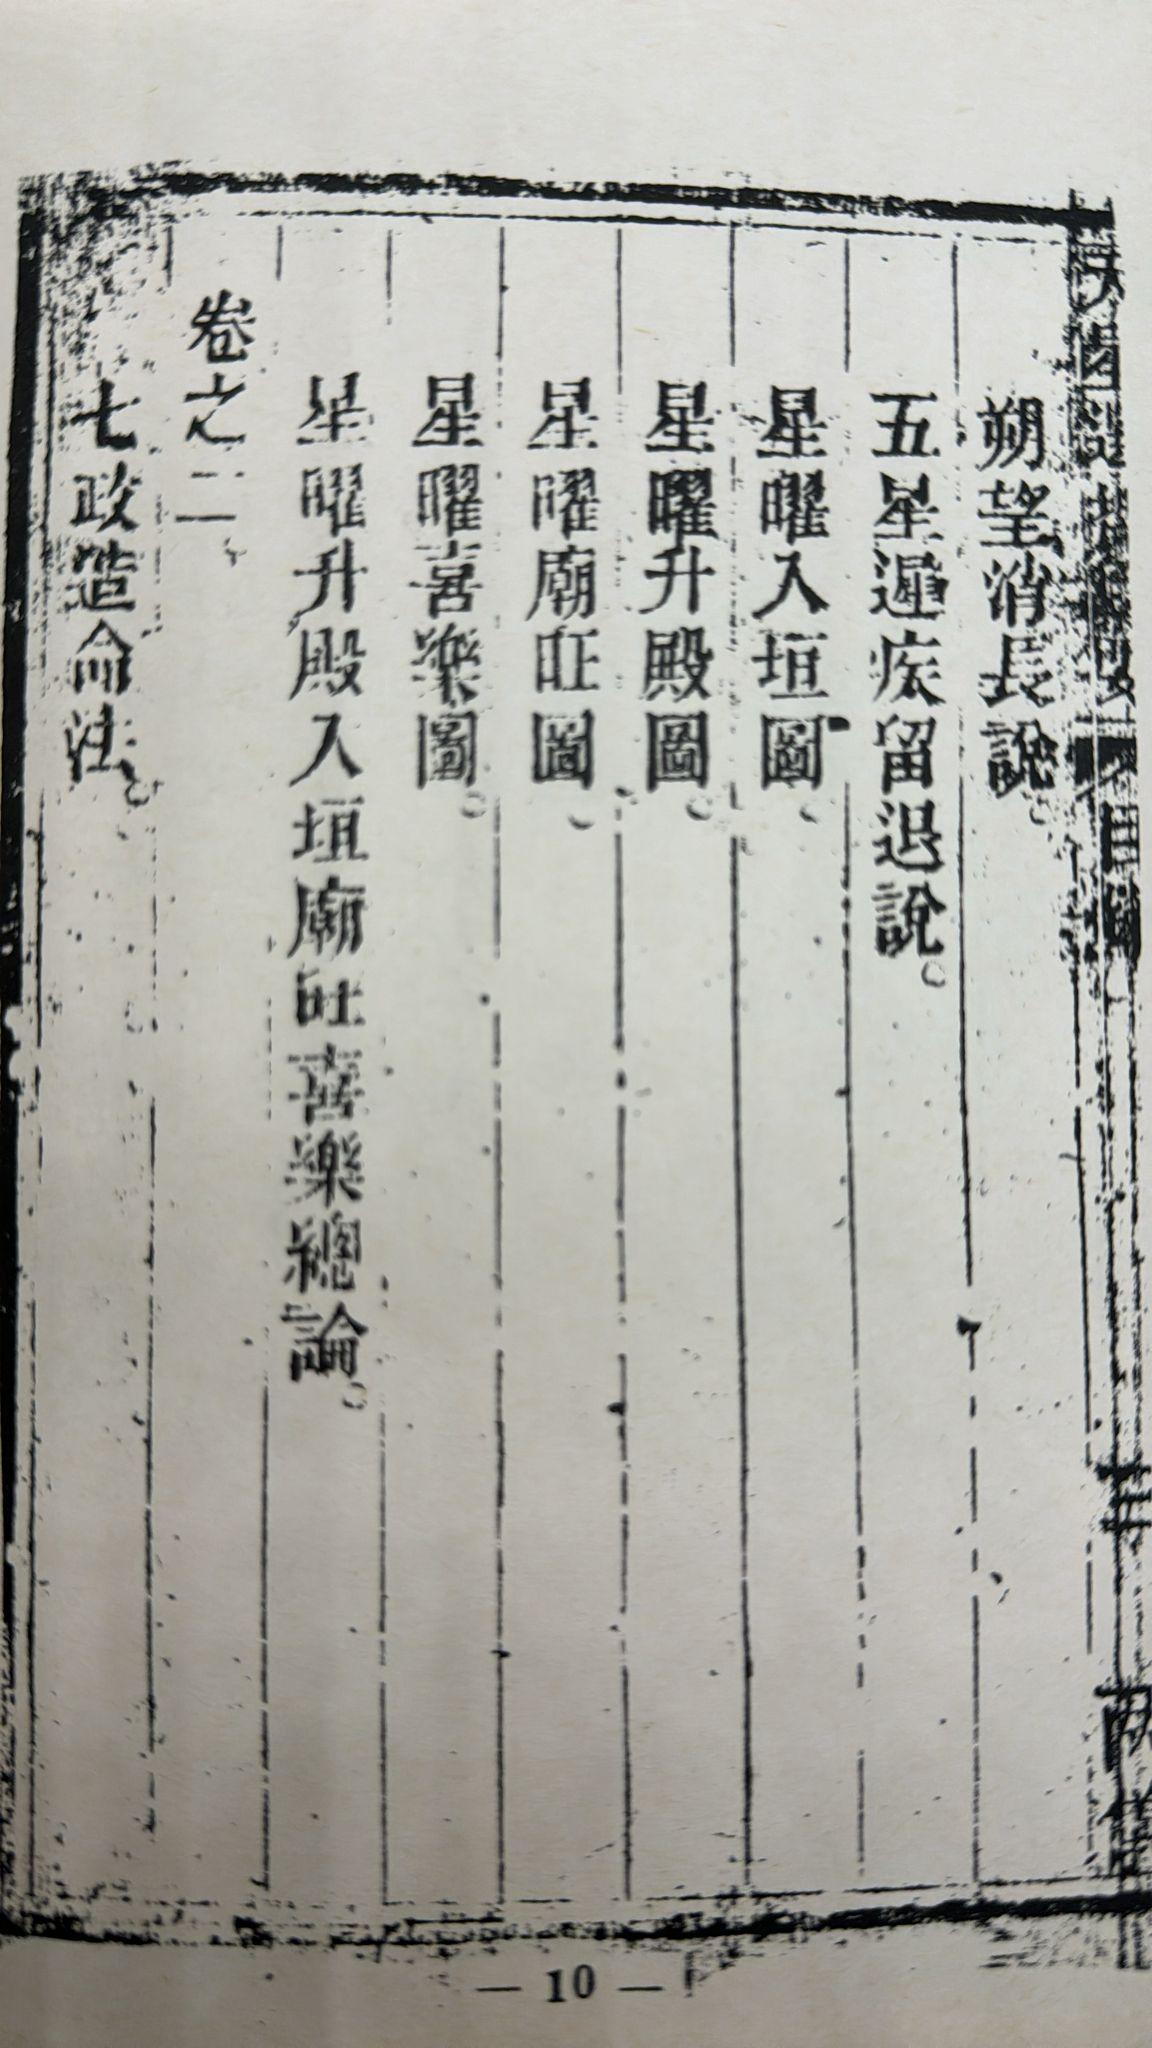 朔望消長說。
五星遲疾留退說。
星曜入垣圖。
星曜升殿圖。
星曜廟旺圖。
星曜喜樂圖。
星曜升殿入垣廟旺喜樂總論。
卷之二
七政造命法。
目錄
— 10 —